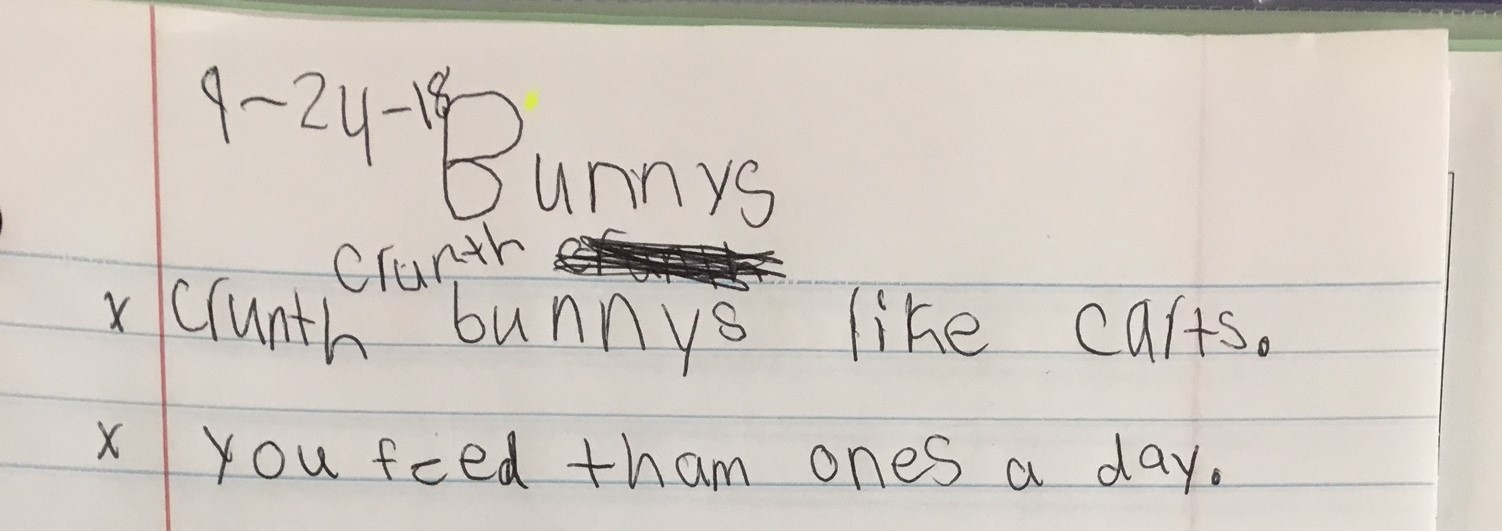 9-24-18
Bunnys
crunth
x crunth bunnys like carts.
x you feed tham ones a day.